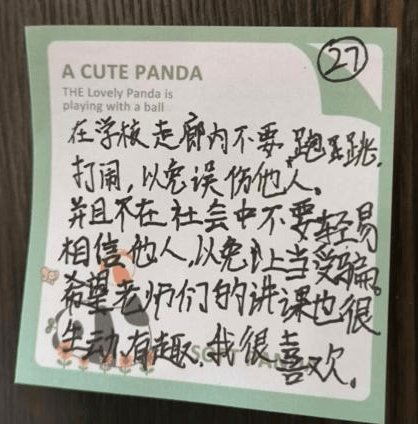 27
A CUTE PANDA
THE Lovely Panda is
playing with a ball
在学校走廊内不要跑跳,
打闹,以免误伤他人。
并且在社会中不要轻易
相信他人,以免上当受骗。
希望老师们的讲课也很
生动、有趣,我很喜欢。